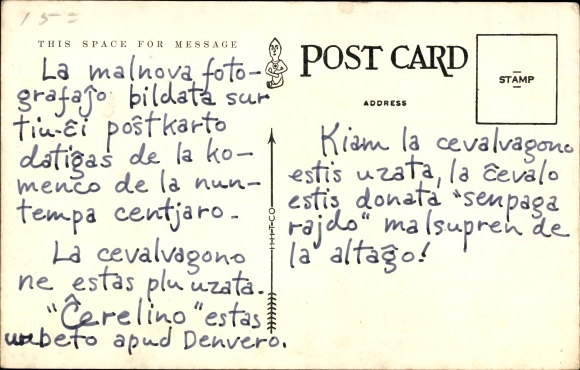 15=
THIS SPACE FOR MESSAGE
La malnova foto-
grafaĵo bildata sur
tiu-ĉi poŝtkarto
datiĝas de la ko-
menco de la nun-
tempa centjaro.
La cevalvagono
ne estas plu uzata.
"Ĉerelino" estas
urbeto apud Denvero.
POST CARD
ADDRESS
STAMP
Kiam la cevalvagono
estis uzata, la ĉevalo
estis donata "senpaga
rajdo" malsupren de
la altaĝo!